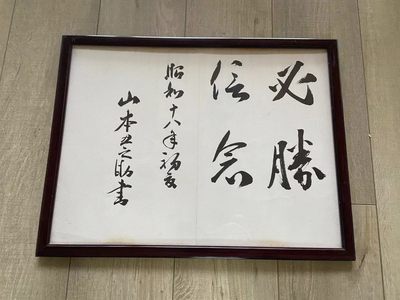 必勝
信念
昭和十八年初夏
山本丑之助書